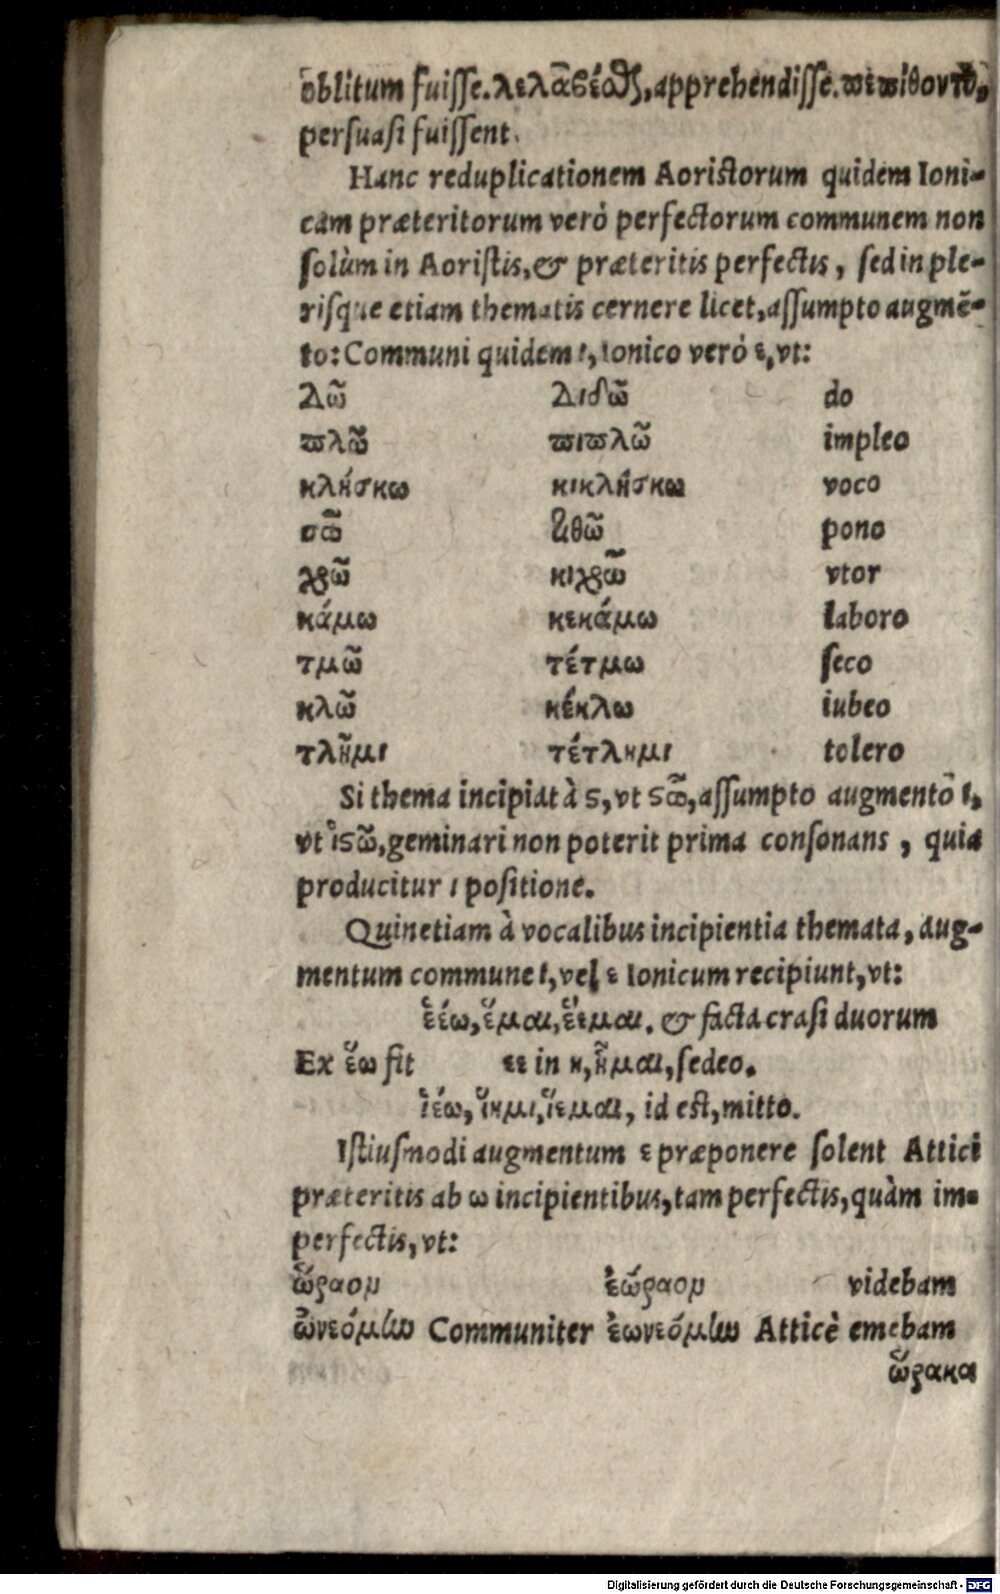 oblitum fuisse. λελαβέσθαι, apprehendisse. πεπίθοντο,
persuasi fuissent.
Hanc reduplicationem Aoristorum quidem Ioni-
cam præteritorum verò perfectorum communem non
solùm in Aoristis, & præteritis perfectis, sed in ple-
risque etiam thematis cernere licet, assumpto augmē-
to: Communi quidem ι, Ionico verò ε, vt:
Δῶ Διδῶ do
πλῶ πιπλῶ impleo
κλήσκω κικλήσκω voco
θῶ τιθῶ pono
χρῶ κιχρῶ vtor
κάμω κεκάμω laboro
τμῶ τέτμω seco
κλῶ κέκλω iubeo
τλῆμι τέτλημι tolero
Si thema incipiat à ϛ, vt ϛῶ, assumpto augmento ι,
vt ἱϛῶ, geminari non poterit prima consonans, quia
producitur ι positione.
Quinetiam à vocalibus incipientia themata, aug-
mentum commune ι, vel ε Ionicum recipiunt, vt:
ἑέω, ἕμαι, ἕεμαι. & facta crasi duorum
Ex ἕω fit εε in η, ἧμαι, sedeo.
ἱέω, ἵημι, ἵεμαι, id est, mitto.
Istiusmodi augmentum ε præponere solent Attici
præteritis ab ω incipientibus, tam perfectis, quàm im-
perfectis, vt:
ὥραον ἑώραον videbam
ὠνεόμην Communiter ἐωνεόμην Atticè emebam
ὥρακα
Digitalisierung gefördert durch die Deutsche Forschungsgemeinschaft - DFG